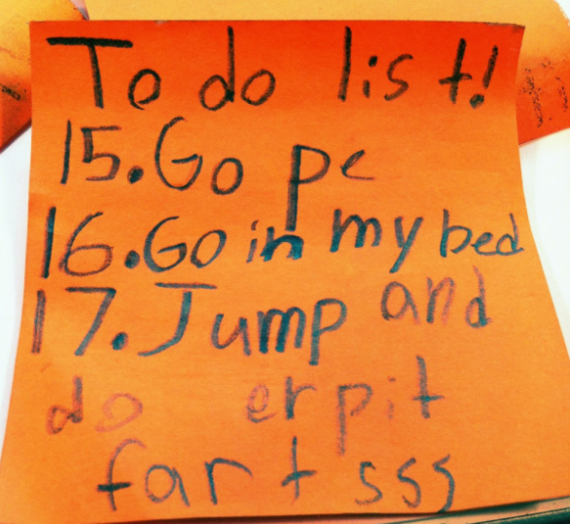 To do list!
15. Go pe
16. Go in my bed
17. Jump and
do erpit
fart sss